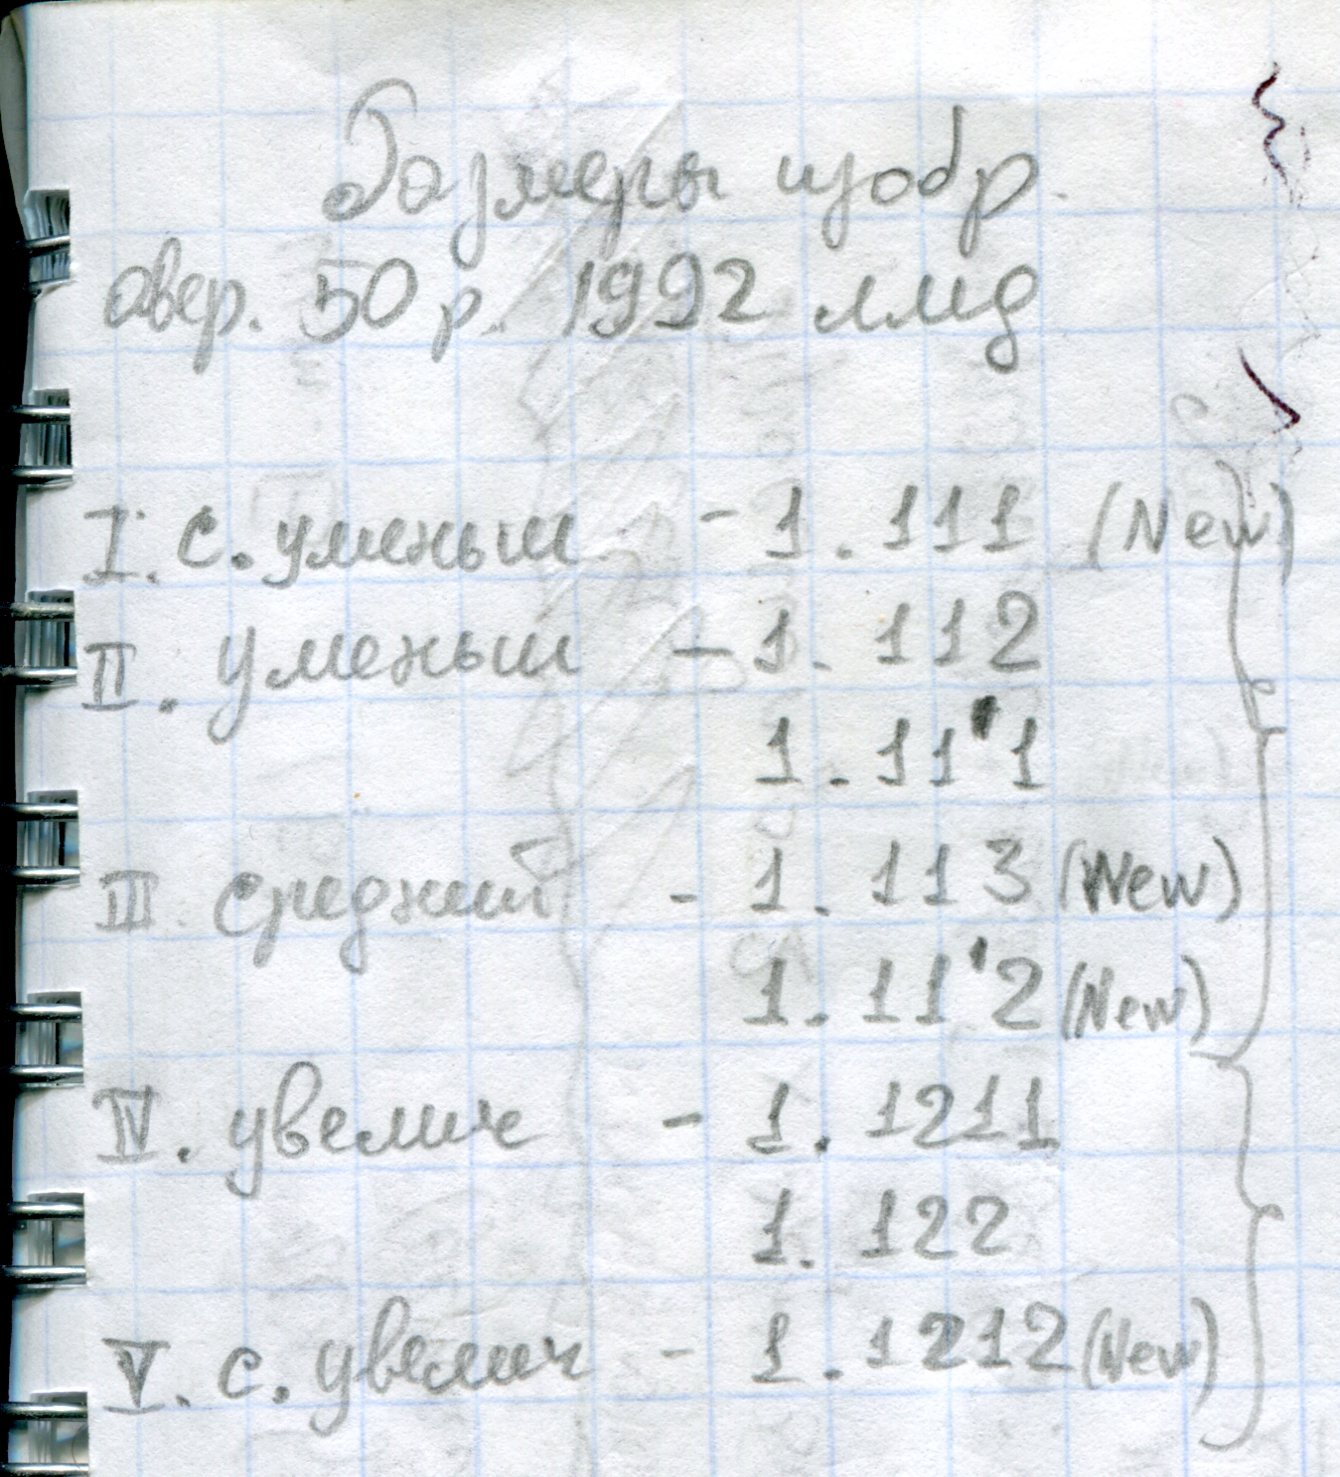 Размеры изобр.
авер. 50 р. 1992 ллмд
I. с. уменьш - 1.111 (New)
II. уменьш - 1.112
1.11'1
III средний - 1.113 (New)
1.11'2 (New)
IV. увелич - 1.1211
1.122
V. с. увелич - 1.1212 (New)